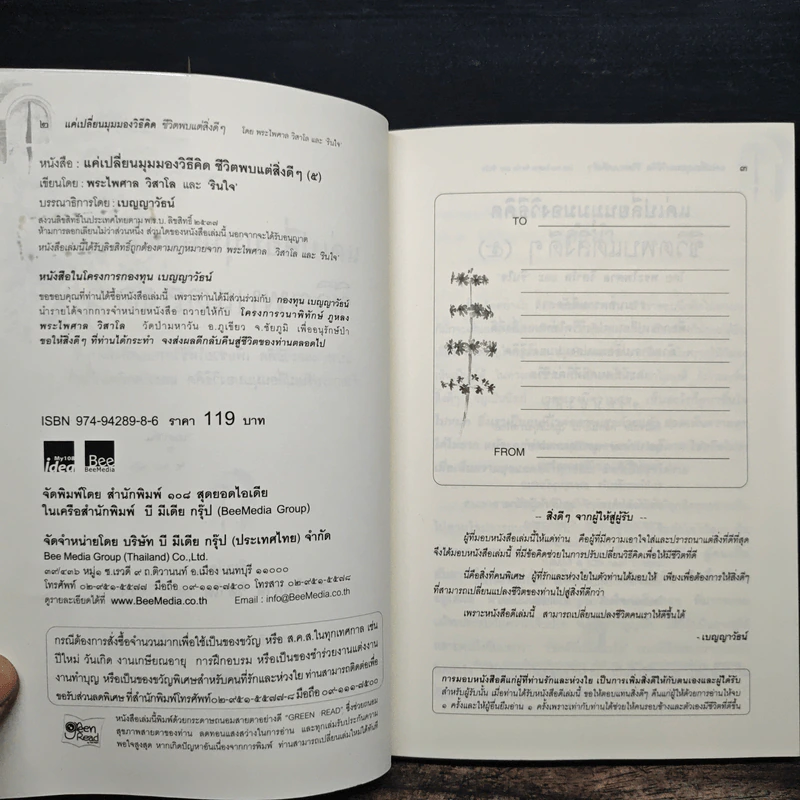 ๒ แค่เปลี่ยนมุมมองวิธีคิด ชีวิตพบแต่สิ่งดีๆ โดย พระไพศาล วิสาโล และ 'รินใจ'
หนังสือ : แค่เปลี่ยนมุมมองวิธีคิด ชีวิตพบแต่สิ่งดีๆ (๕)
เขียนโดย : พระไพศาล วิสาโล และ 'รินใจ'
บรรณาธิการโดย : เบญญาวัธน์
สงวนลิขสิทธิ์ในประเทศไทยตาม พ.ร.บ. ลิขสิทธิ์ ๒๕๓๗
ห้ามการลอกเลียนไม่ว่าส่วนหนึ่ง ส่วนใดของหนังสือเล่มนี้ นอกจากจะได้รับอนุญาต
หนังสือเล่มนี้ได้รับลิขสิทธิ์ถูกต้องตามกฎหมายจาก พระไพศาล วิสาโล และ 'รินใจ'
หนังสือในโครงการกองทุน เบญญาวัธน์
ขอขอบคุณที่ท่านได้ซื้อหนังสือเล่มนี้ เพราะท่านได้มีส่วนร่วมกับ กองทุน เบญญาวัธน์
นำรายได้จากการจำหน่ายหนังสือ ถวายให้กับ โครงการวนาพิทักษ์ ภูหลง
พระไพศาล วิสาโล วัดป่ามหาวัน อ.ภูเขียว จ.ชัยภูมิ เพื่ออนุรักษ์ป่า
ขอให้สิ่งดีๆ ที่ท่านได้กระทำ จงส่งผลดีกลับคืนสู่ชีวิตของท่านตลอดไป
ISBN 974-94289-8-6 ราคา 119 บาท
My108 idea Bee BeeMedia
จัดพิมพ์โดย สำนักพิมพ์ ๑๐๘ สุดยอดไอเดีย
ในเครือสำนักพิมพ์ บี มีเดีย กรุ๊ป (BeeMedia Group)
จัดจำหน่ายโดย บริษัท บี มีเดีย กรุ๊ป (ประเทศไทย) จำกัด
Bee Media Group (Thailand) Co.,Ltd.
๓๙/๔๓๖ หมู่๑ ซ.เรวดี ๙ ถ.ติวานนท์ อ.เมือง นนทบุรี ๑๑๐๐๐
โทรศัพท์ ๐๒-๙๕๑-๕๕๗๘ มือถือ ๐๙-๑๑๑-๗๕๐๐ โทรสาร ๐๒-๙๕๑-๕๕๗๘
ดูรายละเอียดได้ที่ www.BeeMedia.co.th Email : info@BeeMedia.co.th
กรณีต้องการสั่งซื้อจำนวนมากเพื่อใช้เป็นของขวัญ หรือ ส.ค.ส.ในทุกเทศกาล เช่น
ปีใหม่ วันเกิด งานเกษียณอายุ การฝึกอบรม หรือเป็นของชำร่วยงานแต่งงาน
งานทำบุญ หรือเป็นของขวัญพิเศษสำหรับคนที่รักและห่วงใย ท่านสามารถติดต่อเพื่อ
ขอรับส่วนลดพิเศษ ที่สำนักพิมพ์โทรศัพท์๐๒-๙๕๑-๕๕๗๗-๘ มือถือ ๐๙-๑๑๑-๗๕๐๐
green Read
หนังสือเล่มนี้พิมพ์ด้วยกระดาษถนอมสายตาอย่างดี "GREEN READ" ซึ่งช่วยถนอม
สุขภาพสายตาของท่าน ลดทอนแสงสว่างในการอ่าน และทุกเล่มรับประกันความ
พอใจสูงสุด หากเกิดปัญหาอันเนื่องจากการพิมพ์ ท่านสามารถเปลี่ยนเล่มใหม่ได้ทันที
๓
TO
FROM
-- สิ่งดีๆ จากผู้ให้สู่ผู้รับ --
ผู้ที่มอบหนังสือเล่มนี้ให้แด่ท่าน คือผู้ที่มีความเอาใจใส่และปรารถนาแต่สิ่งที่ดีที่สุด
จึงได้มอบหนังสือเล่มนี้ ที่มีข้อคิดช่วยในการปรับเปลี่ยนวิธีคิดเพื่อให้มีชีวิตที่ดี
นี่คือสิ่งที่คนพิเศษ ผู้ที่รักและห่วงใยในตัวท่านได้มอบให้ เพียงเพื่อต้องการให้สิ่งดีๆ
ที่สามารถเปลี่ยนแปลงชีวิตของท่านไปสู่สิ่งที่ดีกว่า
เพราะหนังสือดีเล่มนี้ สามารถเปลี่ยนแปลงชีวิตคนเราให้ดีขึ้นได้
- เบญญาวัธน์
การมอบหนังสือดีแก่ผู้ที่ท่านรักและห่วงใย เป็นการเพิ่มสิ่งดีให้กับตนเองและผู้ได้รับ
สำหรับผู้รับนั้น เมื่อท่านได้รับหนังสือดีเล่มนี้ ขอให้ตอบแทนสิ่งดีๆ คืนแก่ผู้ให้ด้วยการอ่านให้จบ
๑ ครั้งและให้ผู้อื่นยืมอ่าน ๑ ครั้งเพราะเท่ากับท่านได้ช่วยให้คนรอบข้างและตัวเองมีชีวิตที่ดีขึ้น